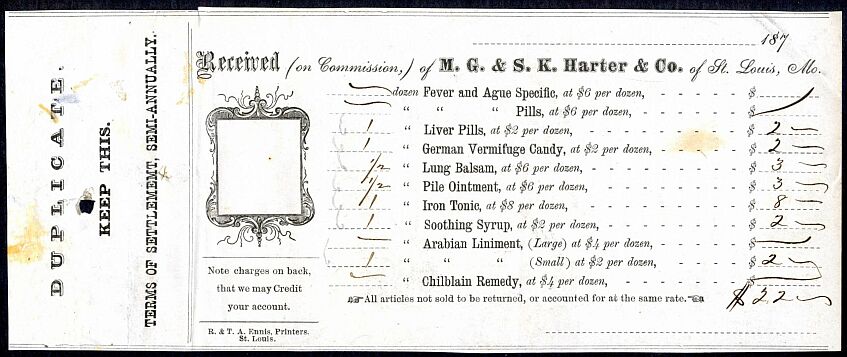 DUPLICATE.
KEEP THIS.
TERMS OF SETTLEMEMT, SEMI-ANNUALLY.
187
Received (on Commission,) of M. G. & S. K. Harter & Co. of St. Louis, Mo.
— dozen Fever and Ague Specific, at $6 per dozen, - - - $ —
— " " " Pills, at $6 per dozen, - - - $ —
1 " Liver Pills, at $2 per dozen, - - - - - - - $ 2 —
1 " German Vermifuge Candy, at $2 per dozen, - - - $ 2 —
1/2 " Lung Balsam, at $6 per dozen, - - - - - - $ 3 —
1/2 " Pile Ointment, at $6 per dozen, - - - - - - $ 3 —
1 " Iron Tonic, at $8 per dozen, - - - - - - - $ 8 —
1 " Soothing Syrup, at $2 per dozen, - - - - - - $ 2 —
— " Arabian Liniment, (Large) at $4 per dozen, - - - $ —
1 " " " (Small) at $2 per dozen, - - - $ 2 —
— " Chilblain Remedy, at $4 per dozen, - - - - - $ —
All articles not sold to be returned, or accounted for at the same rate.
$22 —
Note charges on back,
that we may Credit
your account.
R. & T. A. Ennis, Printers.
St. Louis.